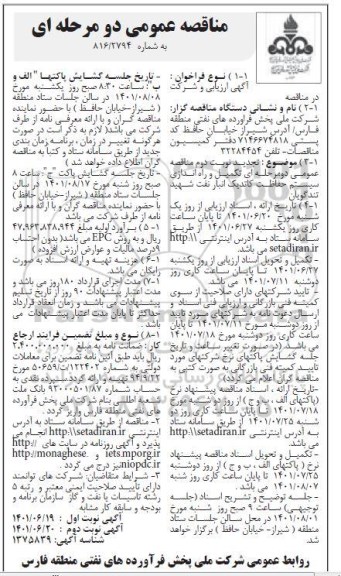 مناقصه عمومی دو مرحله ای
به شماره ۸۱۶/۲۷۹۴
۱-۱) نوع فراخوان :
آگهی ارزیابی و شرکت
در مناقصه
۲-۱) نام و نشانی دستگاه مناقصه گزار:
شرکت ملی پخش فرآورده های نفتی منطقه
فارس/ آدرس شیراز خیابان حافظ کد
پستی ۷۱۴۶۶۷۴۸۱۸ دفتر کمیسیون
مناقصات- تلفن ۳۲۲۸۴۴۵۴
۳-۱) موضوع : تجدید نوبت دوم مناقصه
عمومی دومرحله ای تکمیل و راه اندازی
سیستم حفاظت کاتدیک انبار نفت شهید
تندگویان
۴-۱) تاریخ ارائه اسناد ارزیابی از روز یک
شنبه مورخ ۱۴۰۱/۰۶/۲۰ تا پایان ساعت
کاری روز یکشنبه ۱۴۰۱/۰۶/۲۷ از طریق
سامانه ستاد به آدرس اینترنتی http:\\
setadiran.ir می باشد
- تکمیل و تحویل اسناد ارزیابی از روز یکشنبه
۱۴۰۱/۰۶/۲۷ تا پایان ساعت کاری روز
دوشنبه ۱۴۰۱/۰۷/۱۱ می باشد.
- تایید شرکتهای دارای صلاحیت از سوی
کمیته فنی بازرگانی و ارزیابی فنی اسناد و
ارسال دعوت نامه شرکتهای مورد تایید
از روز دوشنبه مورخ ۱۴۰۱/۰۷/۱۱ تا پایان
ساعت کاری روز دوشنبه مورخ ۱۴۰۱/۰۷/۱۸
می باشد
جلسه گشایش پاکتهای نرخ شرکتهای مورد
تایید کمیته فنی بازرگانی به صورت کتبی به
مناقصه گران اعلام می گردد
- تاریخ ارائه اسناد مناقصه پیشنهاد نرخ
(پاکتهای الف ، ب و ج ) از روز دوشنبه مورخ
۱۴۰۱/۰۷/۱۸ تا پایان ساعت کاری روز دو
شنبه ۱۴۰۱/۰۷/۲۵ از طریق سامانه ستاد
به آدرس اینترنتی http:\\setadiran.ir
می باشد
- تکمیل و تحویل اسناد مناقصه پیشنهاد
نرخ ( پاکتهای الف ، ب و ج ) از روز دوشنبه
۱۴۰۱/۰۷/۲۵ تا پایان ساعت کاری روز شنبه
مورخ ۱۴۰۱/۰۸/۰۷ می باشد.
- جلسه توضیح و تشریح اسناد (جلسه
توجیهی) ساعت ۹ صبح روز شنبه مورخ
۱۴۰۱/۰۸/۰۱ در محل سالن جلسات ستاد
منطقه (شیراز- خیابان حافظ ) برگزار خواهد
شد.
- تاریخ جلسه گشایش پاکتها "الف و
ب": ساعت ۸:۳۰ صبح روز یکشنبه مورخ
۱۴۰۱/۰۸/۰۸ در سالن جلسات ستاد منطقه
(شیراز-خیابان حافظ ) با حضور نماینده
مناقصه گران و با ارائه معرفی نامه از طرف
شرکت می باشد( لازم به ذکر است در صورت
هر گونه تغییر در زمان ، برنامه زمان بندی
جدید از طریق سامانه ستاد و کتبا به مناقصه
گران اطلاع داده خواهد شد )
- تاریخ جلسه گشایش پاکت "ج" ساعت ۸
صبح روز شنبه مورخ ۱۴۰۱/۰۸/۱۷ در سالن
جلسات ستاد منطقه (شیراز-خیابان حافظ )
با حضور نماینده مناقصه گران و با ارائه معرفی
نامه از طرف شرکت می باشد
۵-۱) برآورد اولیه مبلغ ۴۷,۹۶۳,۸۳۸,۹۴۴
ریال و به روش EPC می باشد( بدون احتساب
۹درصد مالیات و عوارض ارزش افزوده )
۶-۱) هزینه تهیه و ارائه اسناد به صورت
رایگان می باشد.
۷-۱) مدت اجرای قرارداد ۱۸۰ روز می باشد و
مدت اعتبار پیشنهادات ۹۰ روز از تاریخ تسلیم
پیشنهادات می باشد و زمان انعقاد قرارداد
حداکثر تا پایان مدت اعتبار پیشنهادات می
باشد.
۸-۱) نوع و مبلغ تضمین فرایند ارجاع
کار: ضمانت نامه به مبلغ ۲,۴۰۰,۰۰۰,۰۰۰
ریال باید طبق آئین نامه تضمین برای معاملات
دولتی به شماره ۱۲۳۴۰۲/ت ۵۰۶۵۹ ه مورخ
۹۴/۹/۲۲ تهیه و ارائه گردد سپرده نقدی به
نام شرکت ملی پخش فرآورده
های نفتی منطقه فارس واریز گردد .
۲- مناقصه از طریق سامانه ستاد به آدرس
اینترنتی http:\\setadiran.ir انجام می
پذیرد و آگهی روزنامه در سایت های http://
iets.mporg.ir و http://monaghese.
niopdc.ir نیز درج می گردد .
۳- شرایط متقاضیان: شرکت های توانمند
دارای تایید صلاحیت ایمنی معتبر و رتبه ۵
رشته تاسیسات یا نفت و گاز سازمان برنامه و
بودجه و سابقه کار مشابه
آگهی نوبت اول : ۱۴۰۱/۰۶/۱۹
آگهی نوبت دوم : ۱۴۰۱/۰۶/۲۰
شناسه آگهی: ۱۳۷۵۸۳۹
روابط عمومی شرکت ملی پخش فرآورده های نفتی منطقه فارس